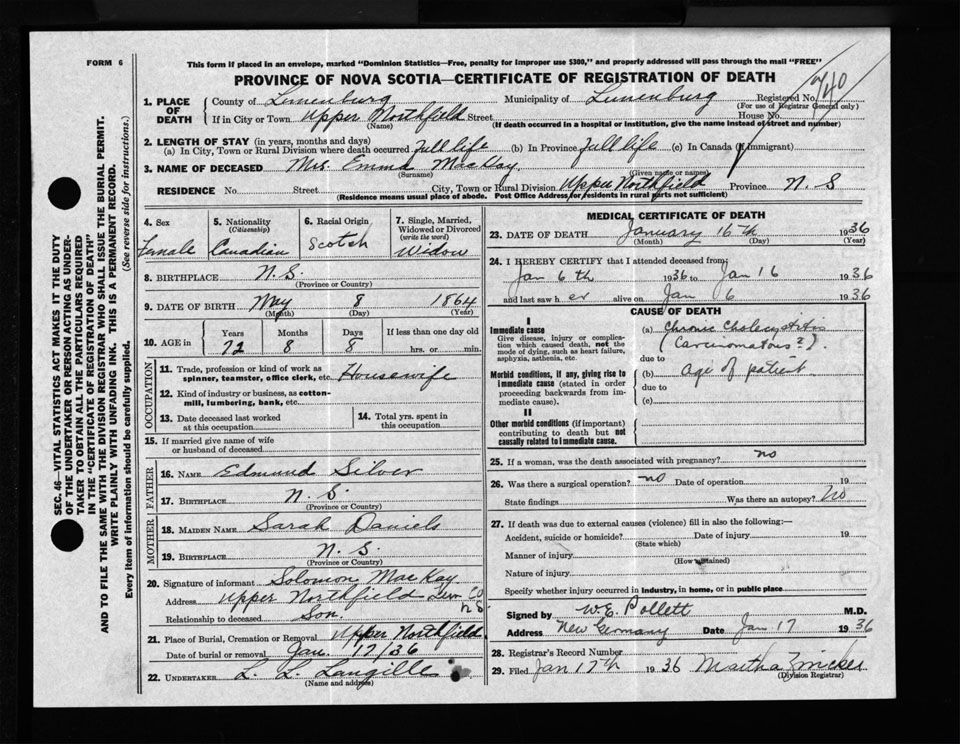 FORM 6
This form if placed in an envelope, marked "Dominion Statistics—Free, penalty for improper use $300," and properly addressed will pass through the mail "FREE"
PROVINCE OF NOVA SCOTIA—CERTIFICATE OF REGISTRATION OF DEATH
740
1. PLACE OF DEATH
County of Lunenburg Municipality of Lunenburg Registered No.
(For use of Registrar General only)
If in City or Town Upper Northfield Street House No.
(Name) (If death occurred in a hospital or institution, give the name instead of street and number)
2. LENGTH OF STAY (in years, months and days)
(a) In City, Town or Rural Division where death occurred Full life (b) In Province Full life (c) In Canada (if immigrant)
3. NAME OF DECEASED Mrs. Emma MacKay
(Surname) (Given name or names)
RESIDENCE No. Street City, Town or Rural Division Upper Northfield Province N. S
(Residence means usual place of abode. Post Office Address for residents in rural parts not sufficient)
SEC. 46—VITAL STATISTICS ACT MAKES IT THE DUTY
OF THE UNDERTAKER OR PERSON ACTING AS UNDER-
TAKER TO OBTAIN ALL THE PARTICULARS REQUIRED
IN THE "CERTIFICATE OF REGISTRATION OF DEATH"
AND TO FILE THE SAME WITH THE DIVISION REGISTRAR WHO SHALL ISSUE THE BURIAL PERMIT.
WRITE PLAINLY WITH UNFADING INK. THIS IS A PERMANENT RECORD.
Every item of information should be carefully supplied. (See reverse side for instructions.)
4. Sex
Female
5. Nationality
(Citizenship)
Canadian
6. Racial Origin
Scotch
7. Single, Married,
Widowed or Divorced
(write the word)
Widow
8. BIRTHPLACE N. S.
(Province or Country)
9. DATE OF BIRTH May 8 1864
(Month) (Day) (Year)
10. AGE in
Years Months Days If less than one day old
72 8 8 hrs. or min.
OCCUPATION
11. Trade, profession or kind of work as
spinner, teamster, office clerk, etc. Housewife
12. Kind of industry or business, as cotton-
mill, lumbering, bank, etc.
13. Date deceased last worked
at this occupation
14. Total yrs. spent in
this occupation
15. If married give name of wife
or husband of deceased
FATHER
16. NAME Edmund Silver
17. BIRTHPLACE N. S.
(Province or Country)
MOTHER
18. MAIDEN NAME Sarah Daniels
19. BIRTHPLACE N. S.
(Province or Country)
20. Signature of informant Solomon MacKay
Address Upper Northfield Lun Co
N S
Relationship to deceased Son.
21. Place of Burial, Cremation or Removal Upper Northfield
Date of burial or removal Jan. 17/36
22. UNDERTAKER L. L. Langille
(Name and address)
MEDICAL CERTIFICATE OF DEATH
23. DATE OF DEATH January 16th 1936
(Month) (Day) (Year)
24. I HEREBY CERTIFY that I attended deceased from
Jan 6th 1936 to Jan 16 1936
and last saw her alive on Jan 6 1936
CAUSE OF DEATH
I
Immediate cause
Give disease, injury or complica-
tion which caused death, not the
mode of dying, such as heart failure,
asphyxia, asthenia, etc.
Morbid conditions, if any, giving rise to
immediate cause (stated in order
proceeding backwards from im-
mediate cause).
II
Other morbid conditions (if important)
contributing to death but not
causally related to immediate cause.
(a) Chronic Cholecystitis
(Carcinomatous?).
due to
(b) age of patient
due to
(c)
25. If a woman, was the death associated with pregnancy? no
26. Was there a surgical operation? no Date of operation 19
State findings Was there an autopsy? No
27. If death was due to external causes (violence) fill in also the following:—
Accident, suicide or homicide? Date of injury 19
(State which)
Manner of injury
(How sustained)
Nature of injury
Specify whether injury occurred in industry, in home, or in public place
Signed by W.E. Pollett M.D.
Address New Germany Date Jan 17 1936
28. Registrar's Record Number
29. Filed Jan 17th 1936 Martha Zwicker
(Division Registrar)